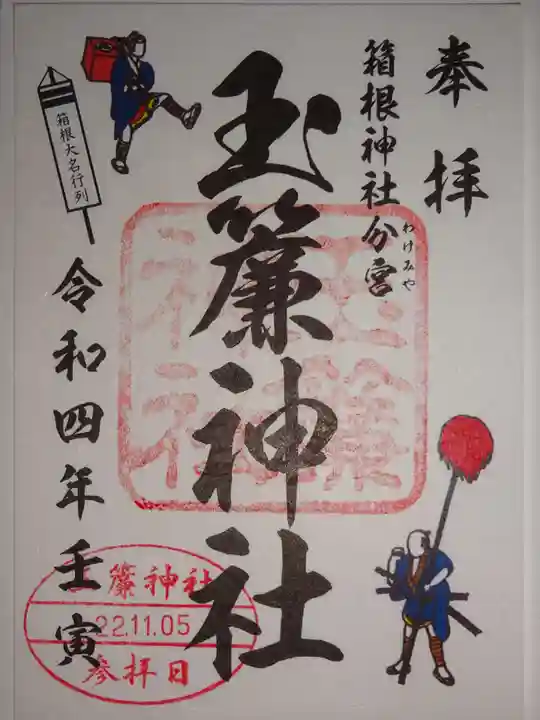 奉拝
箱根神社分宮
わけみや
玉簾神社
玉簾神社
箱根大名行列
令和四年壬寅
簾神社
22.11.05
参拝日